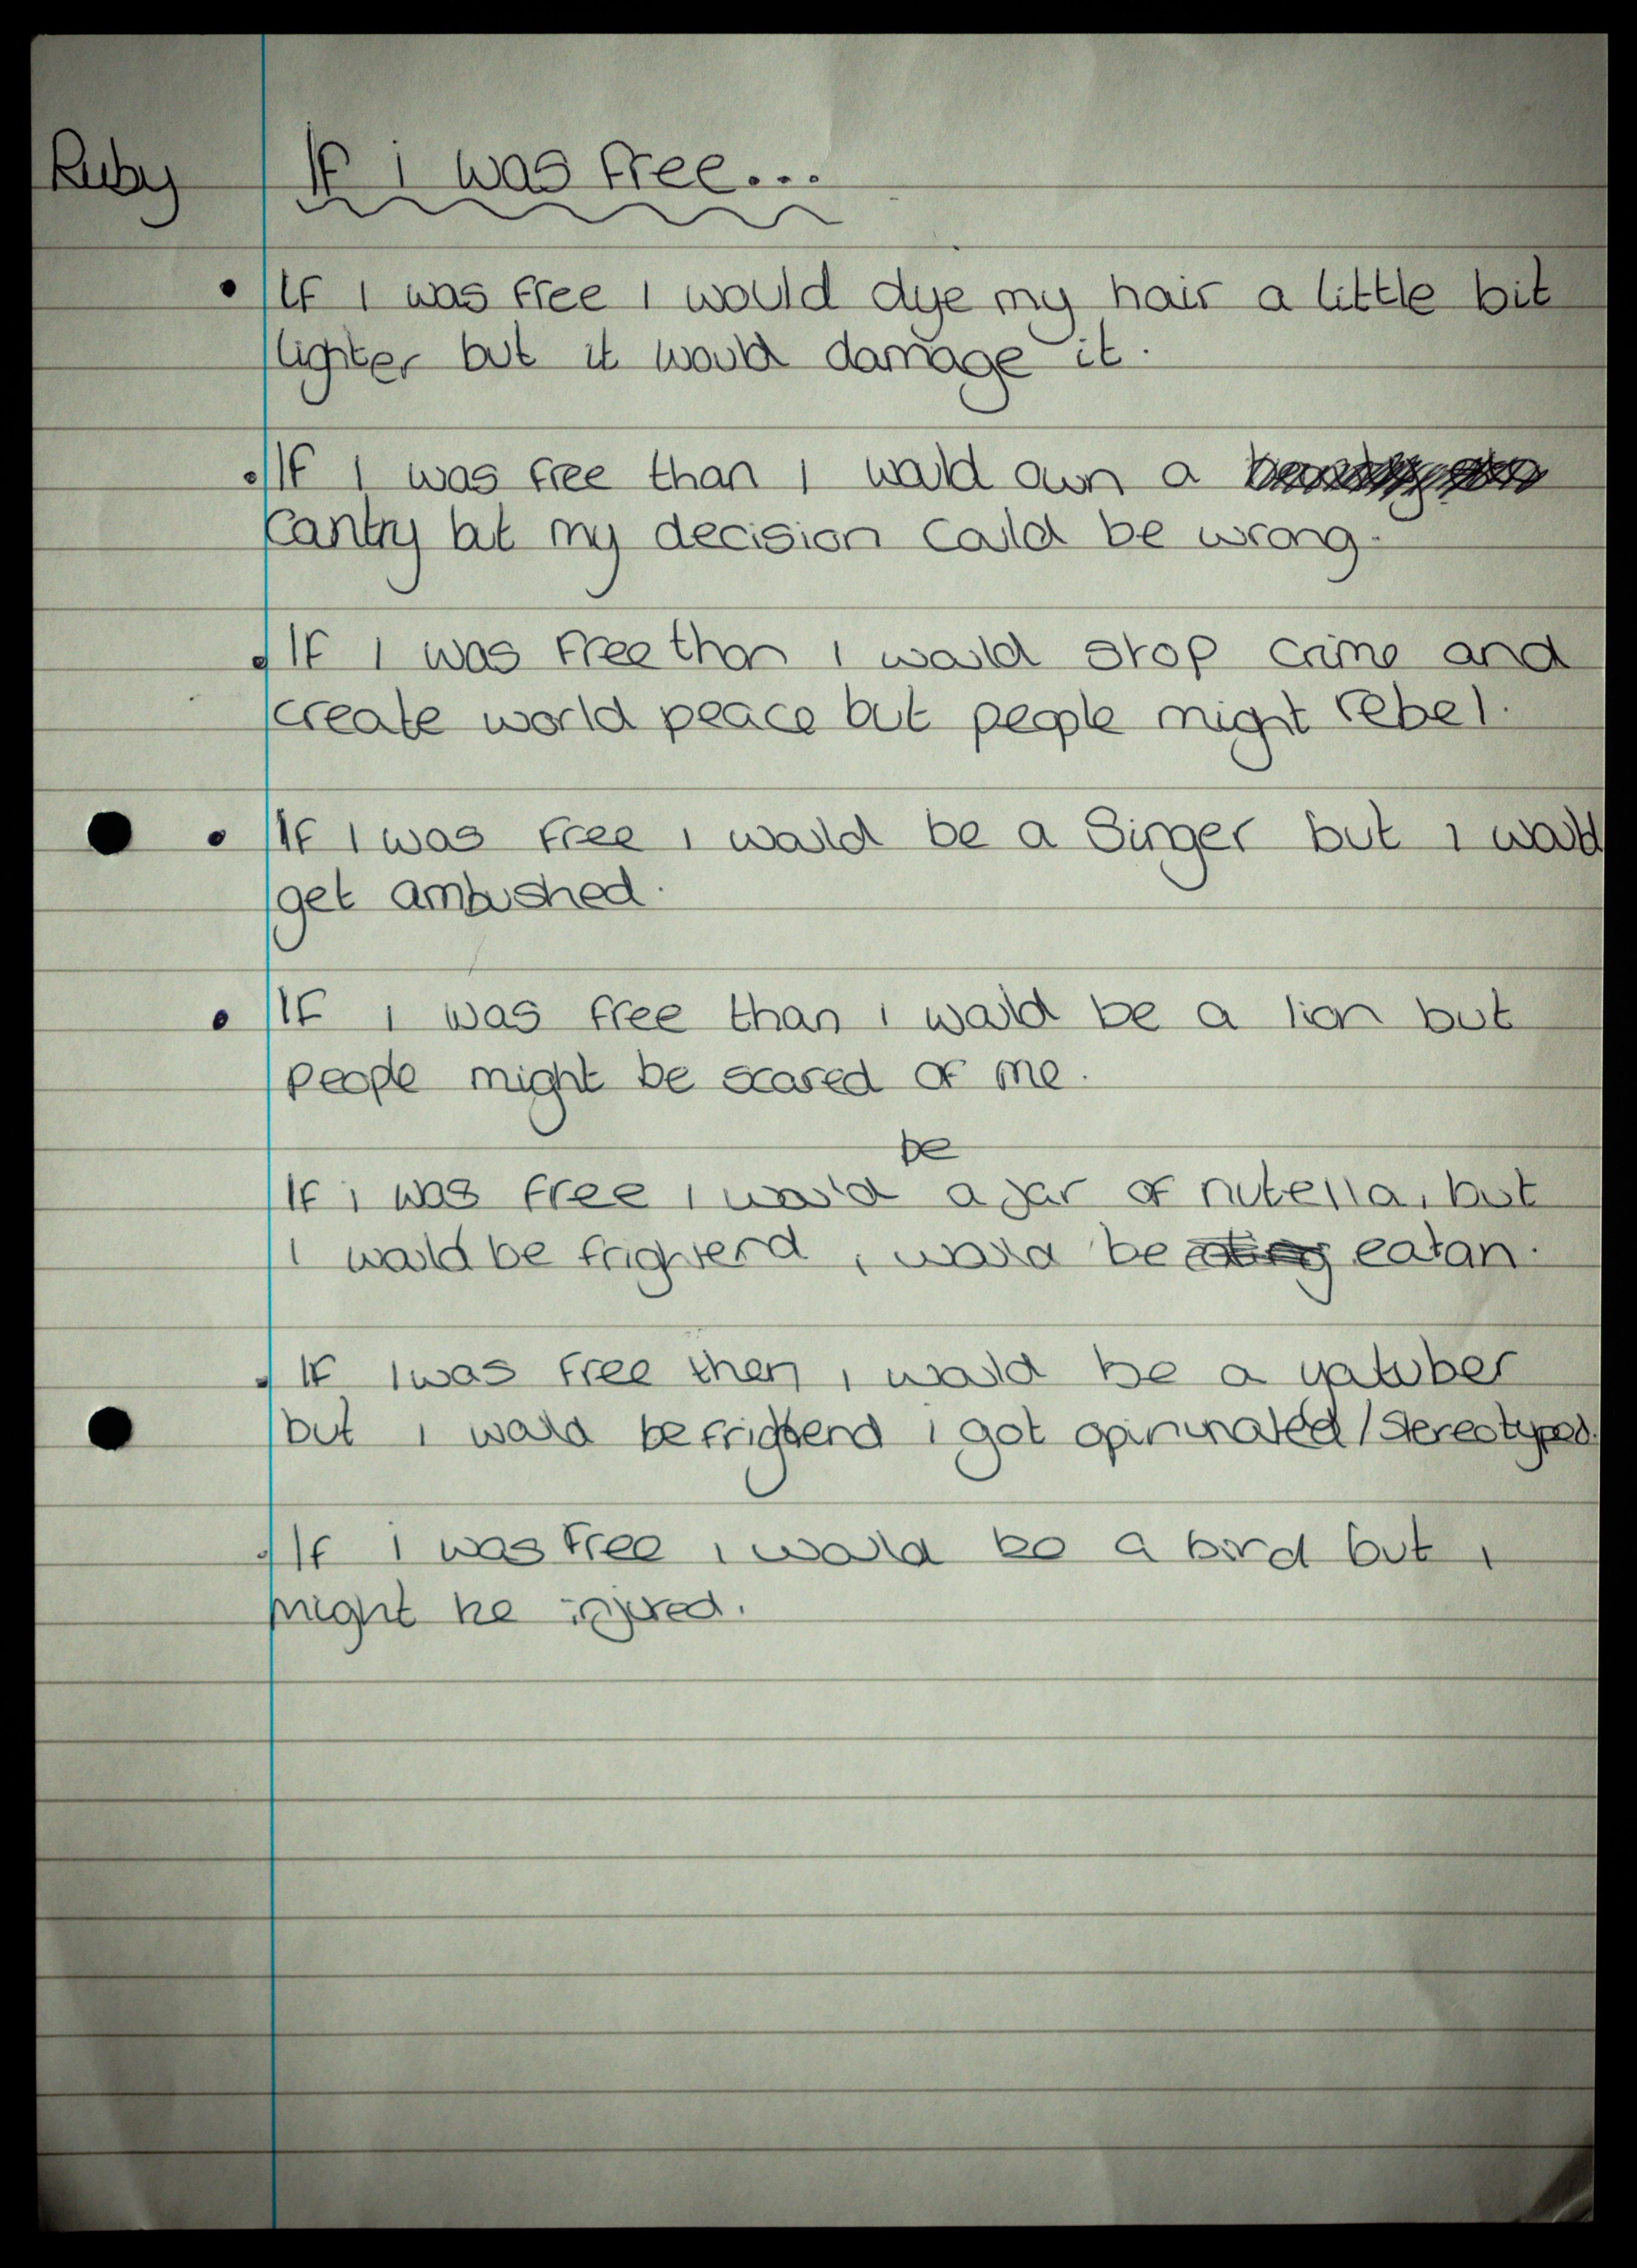 Ruby
If i was free...
• If I was free I would dye my hair a little bit
lighter but it would damage it.
• If I was free than I would own a
Country but my decision could be wrong.
• If I was free than I would stop crime and
create world peace but people might rebel.
• If I was free I would be a Singer but I would
get ambushed.
• If I was free than I would be a lion but
people might be scared of me.
If i was free I would be a jar of nutella, but
I would be frightend, I would be eatan.
• If I was free then I would be a youtuber
but I would be frightend i got opinunated / Stereotyped.
• If i was free I would be a bird but I
might be injured.